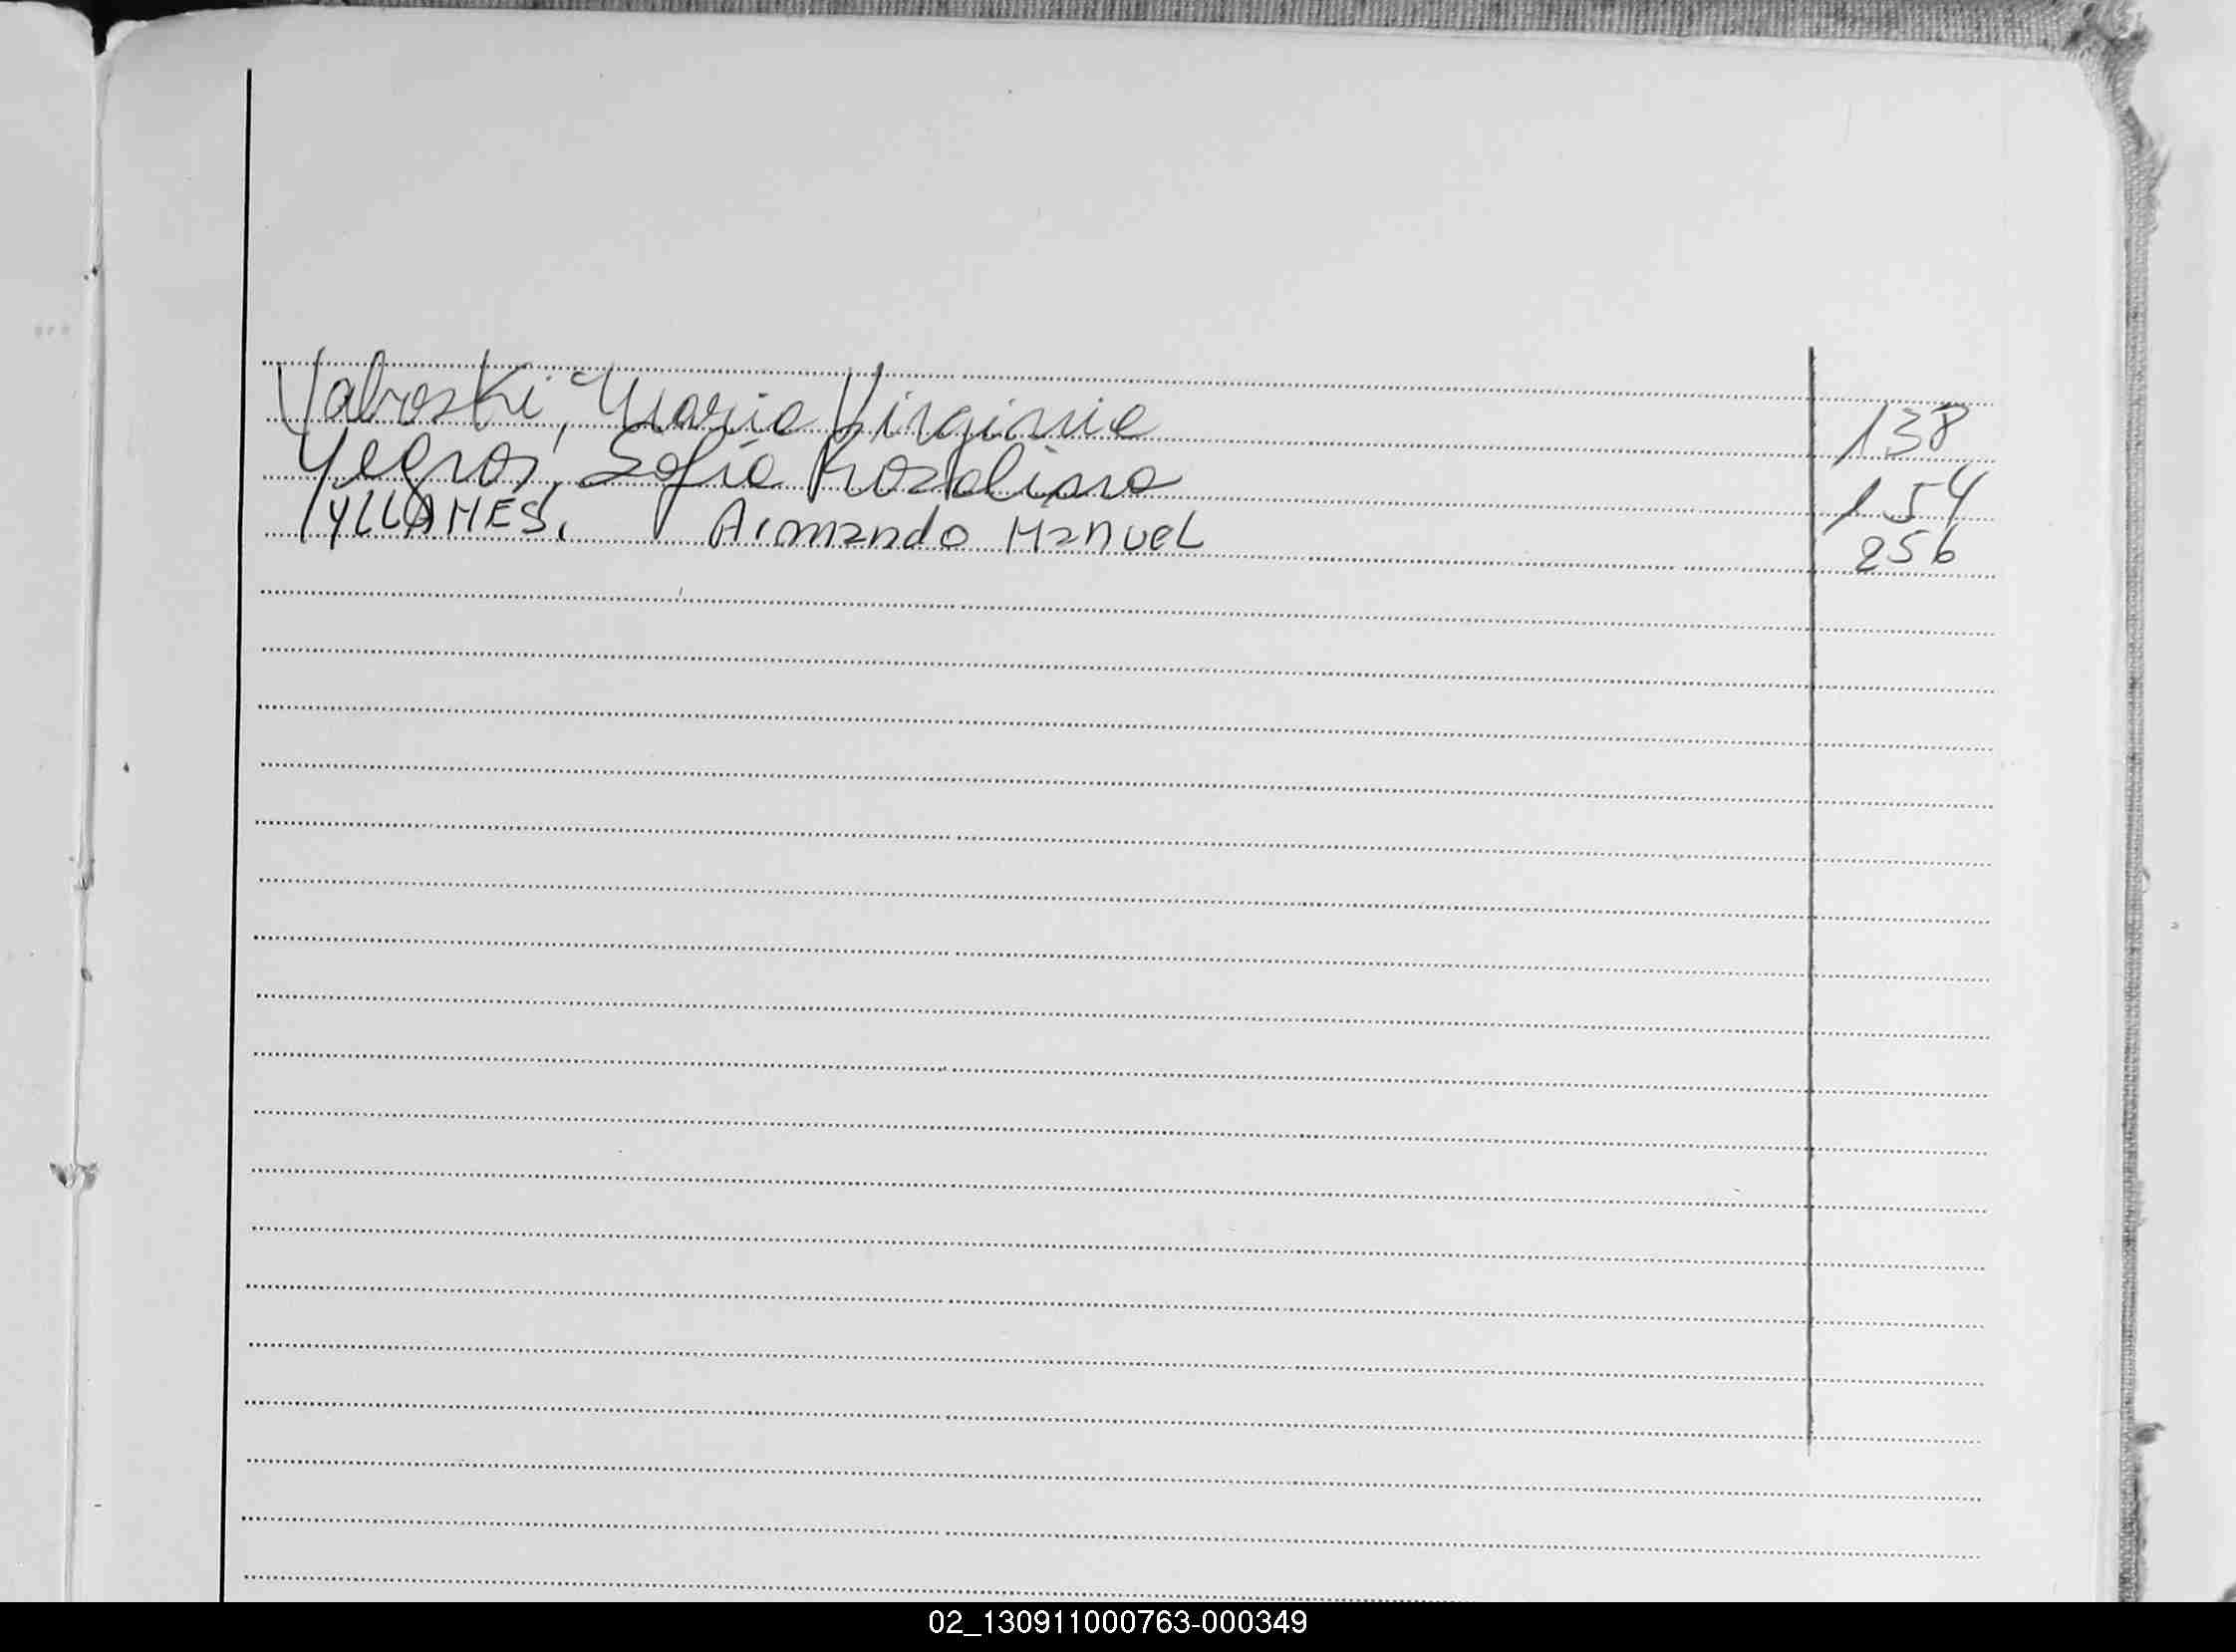 Yabroski, Maria Virginia 138
Yegros, Sofia Rosalina 154
YLLANES, Armando Manuel 256
02_130911000763-000349